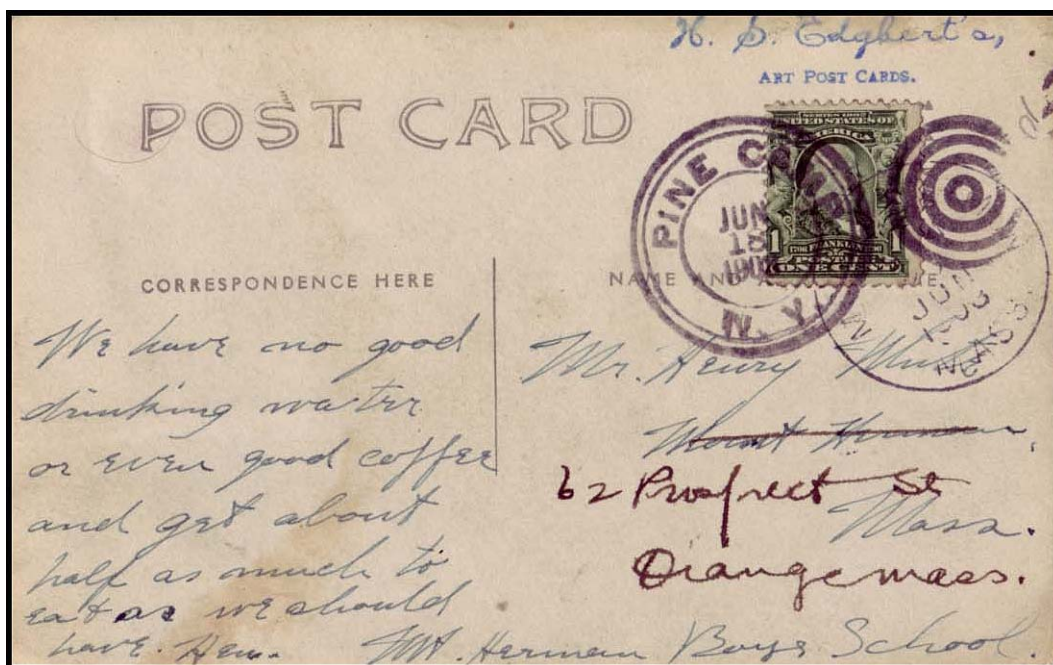 H. S. Edgbert's,
ART POST CARDS.
POST CARD
SERIES 1902
UNITED STATES OF
AMERICA
1 FRANKLIN 1
POSTAGE
ONE CENT
PINE CAMP
JUN
18
190
N. Y.
JUN
1908
MASS.
CORRESPONDENCE HERE
NAME AND
We have no good
drinking water
or even good coffee
and get about
half as much to
eat as we should
have. Hen.
Mr. Henry
Mount Hermon,
62 Prospect St
Mass.
Orange mass.
Mt. Hermon Boys School.